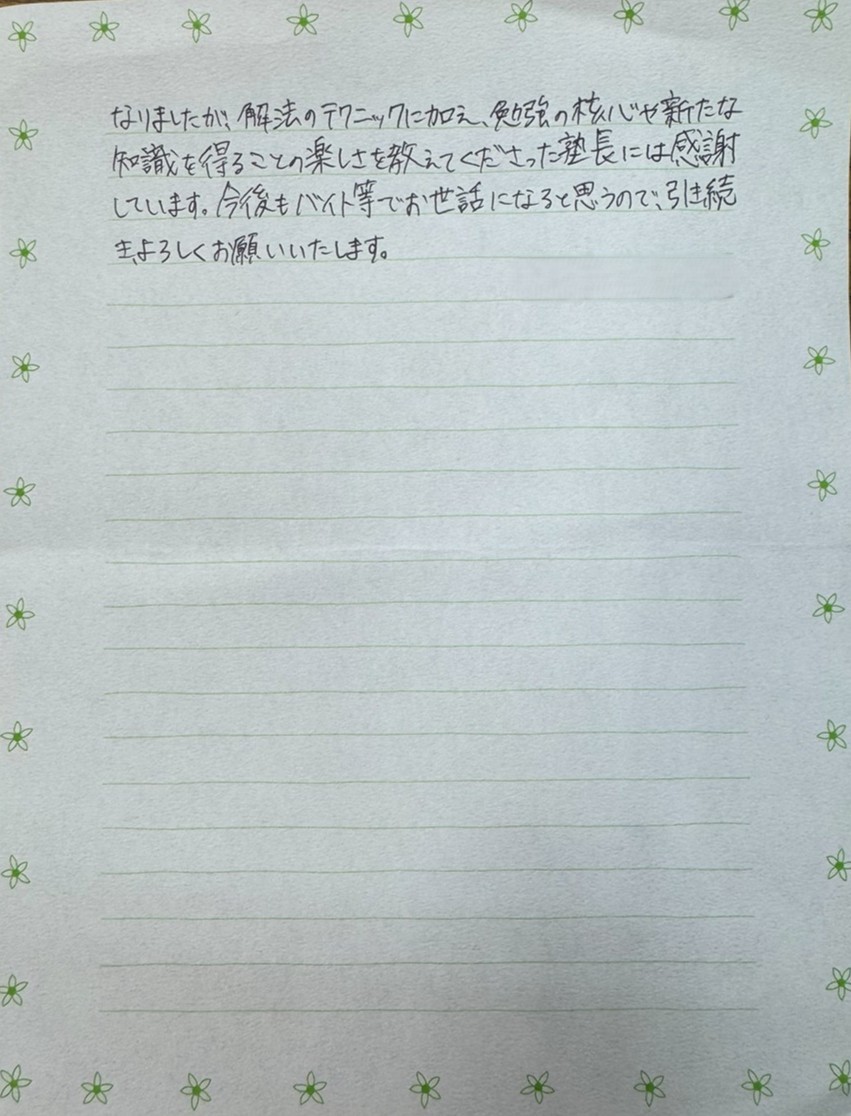 なりましたが、解法のテクニックに加え、勉強の核心や新たな
知識を得ることの楽しさを教えてくださった塾長には感謝
しています。今後もバイト等でお世話になると思うので、引き続
き、よろしくお願いいたします。